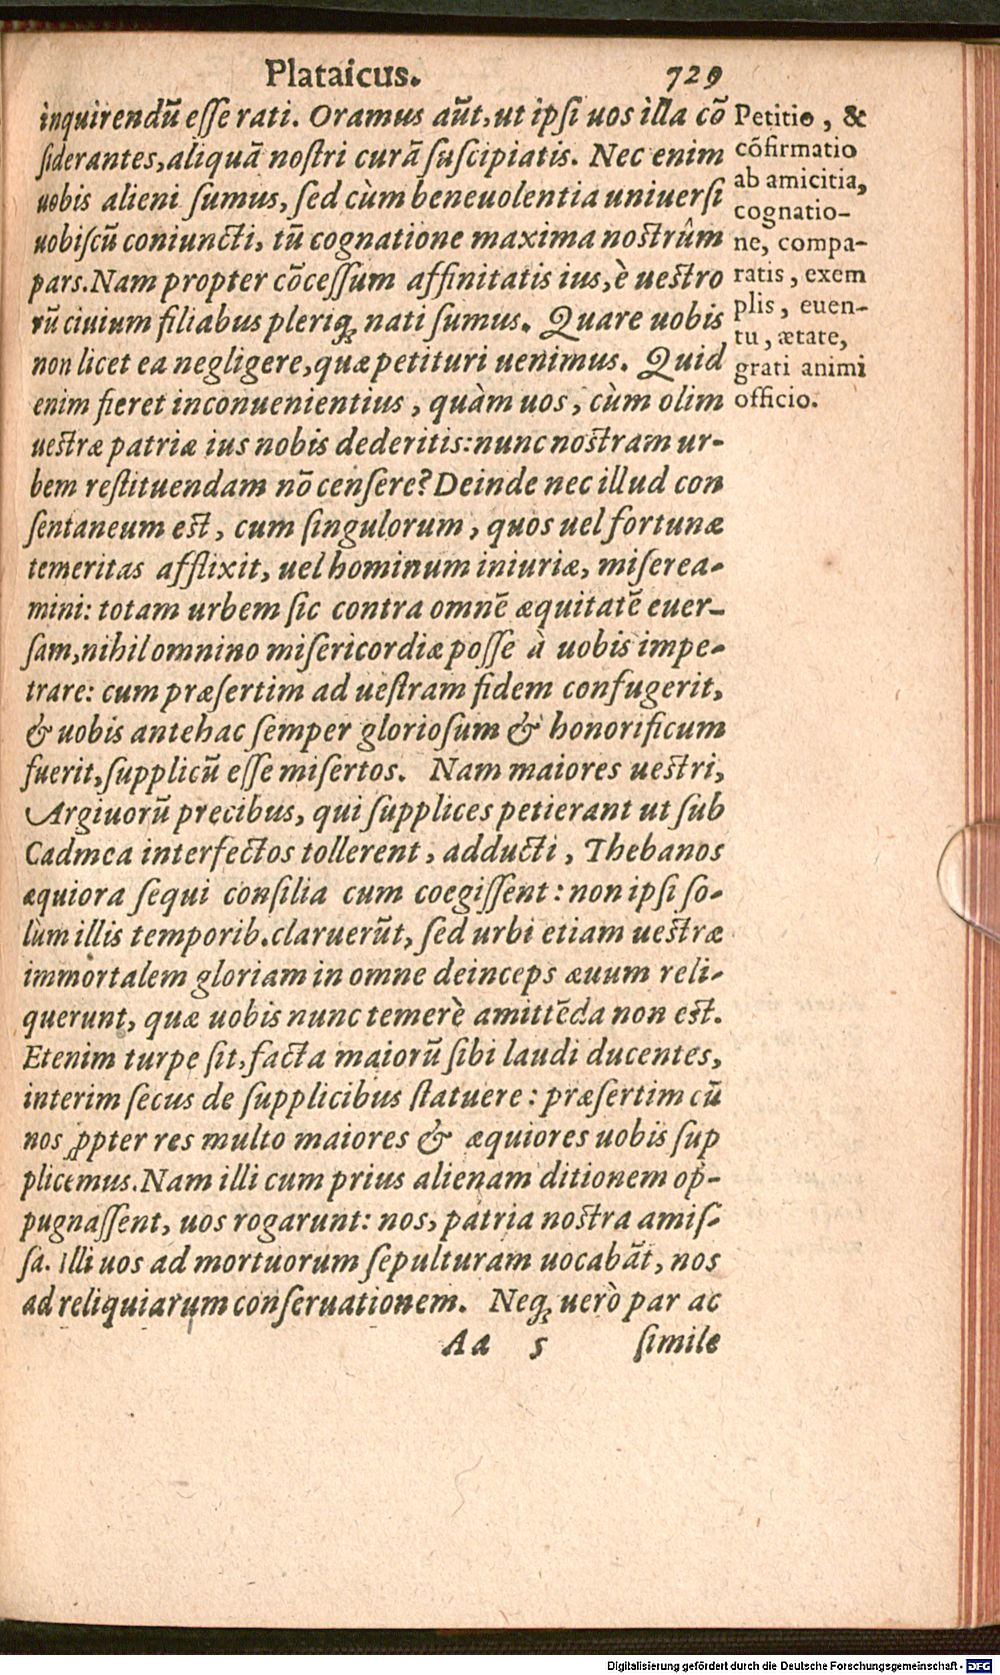 Plataicus. 729
inquirendū esse rati. Oramus aūt, ut ipsi uos illa cō
siderantes, aliquā nostri curā suscipiatis. Nec enim
uobis alieni sumus, sed cùm beneuolentia uniuersi
uobiscū coniuncti, tū cognatione maxima nostrûm
pars. Nam propter cōcessum affinitatis ius, è uestro
rū ciuium filiabus pleriq; nati sumus. Quare uobis
non licet ea negligere, quæ petituri uenimus. Quid
enim fieret inconuenientius, quàm uos, cùm olim
uestræ patriæ ius nobis dederitis: nunc nostram ur-
bem restituendam nō censere? Deinde nec illud con
sentaneum est, cum singulorum, quos uel fortunæ
temeritas afflixit, uel hominum iniuriæ, miserea-
mini: totam urbem sic contra omnē æquitatē euer-
sam, nihil omnino misericordiæ posse à uobis impe-
trare: cum præsertim ad uestram fidem confugerit,
& uobis antehac semper gloriosum & honorificum
fuerit, supplicū esse misertos. Nam maiores uestri,
Argiuorū precibus, qui supplices petierant ut sub
Cadmea interfectos tollerent, adducti, Thebanos
æquiora sequi consilia cum coegissent: non ipsi so-
lùm illis temporib. claruerūt, sed urbi etiam uestræ
immortalem gloriam in omne deinceps æuum reli-
querunt, quæ uobis nunc temerè amittēda non est.
Etenim turpe sit, facta maiorū sibi laudi ducentes,
interim secus de supplicibus statuere: præsertim cū
nos ꝓpter res multo maiores & æquiores uobis sup
plicemus. Nam illi cum prius alienam ditionem op-
pugnassent, uos rogarunt: nos, patria nostra amis-
sa. Illi uos ad mortuorum sepulturam uocabāt, nos
ad reliquiarum conseruationem. Neq; uerò par ac
Aa 5 simile
Petitio, &
cōfirmatio
ab amicitia,
cognatio-
ne, compa-
ratis, exem
plis, euen-
tu, ætate,
grati animi
officio.
Digitalisierung gefördert durch die Deutsche Forschungsgemeinschaft - DFG